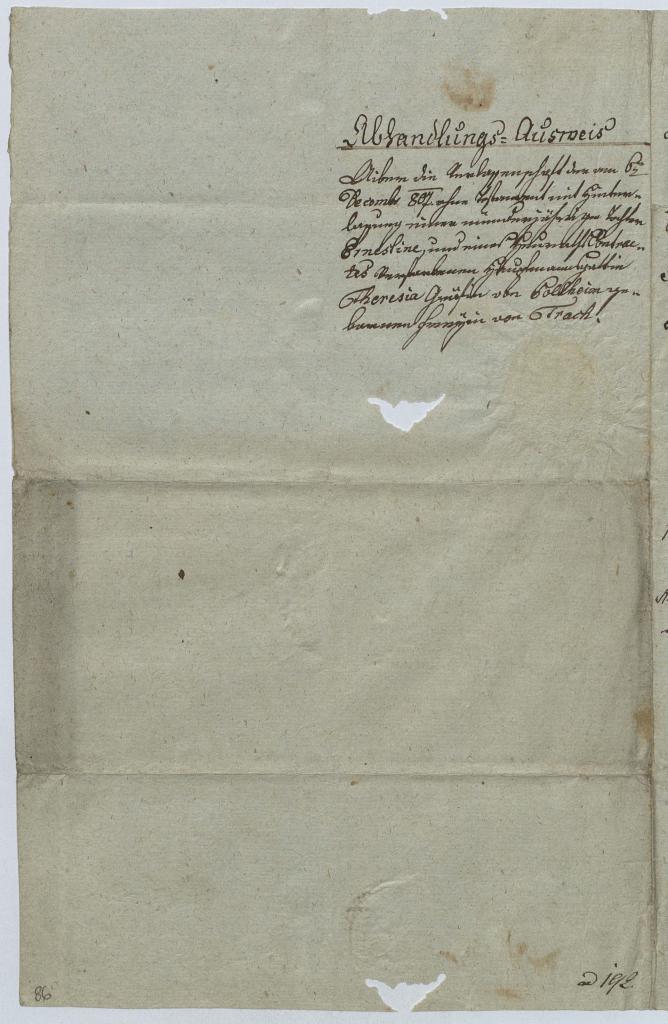 Abhandlungs=Ausweis
Uiber die Verlassenschaft der am 6ten
Decembr 807. ohne Testament mit Hinter-
lassung einer minderjährigen Tochter
Ernestine, und eines Heuraths Contrac-
tes verstorbenen Hauptmannsgattin
Theresia Gräfin von Pollheim ge-
bornen Freyin von Trach.
ad 192
86